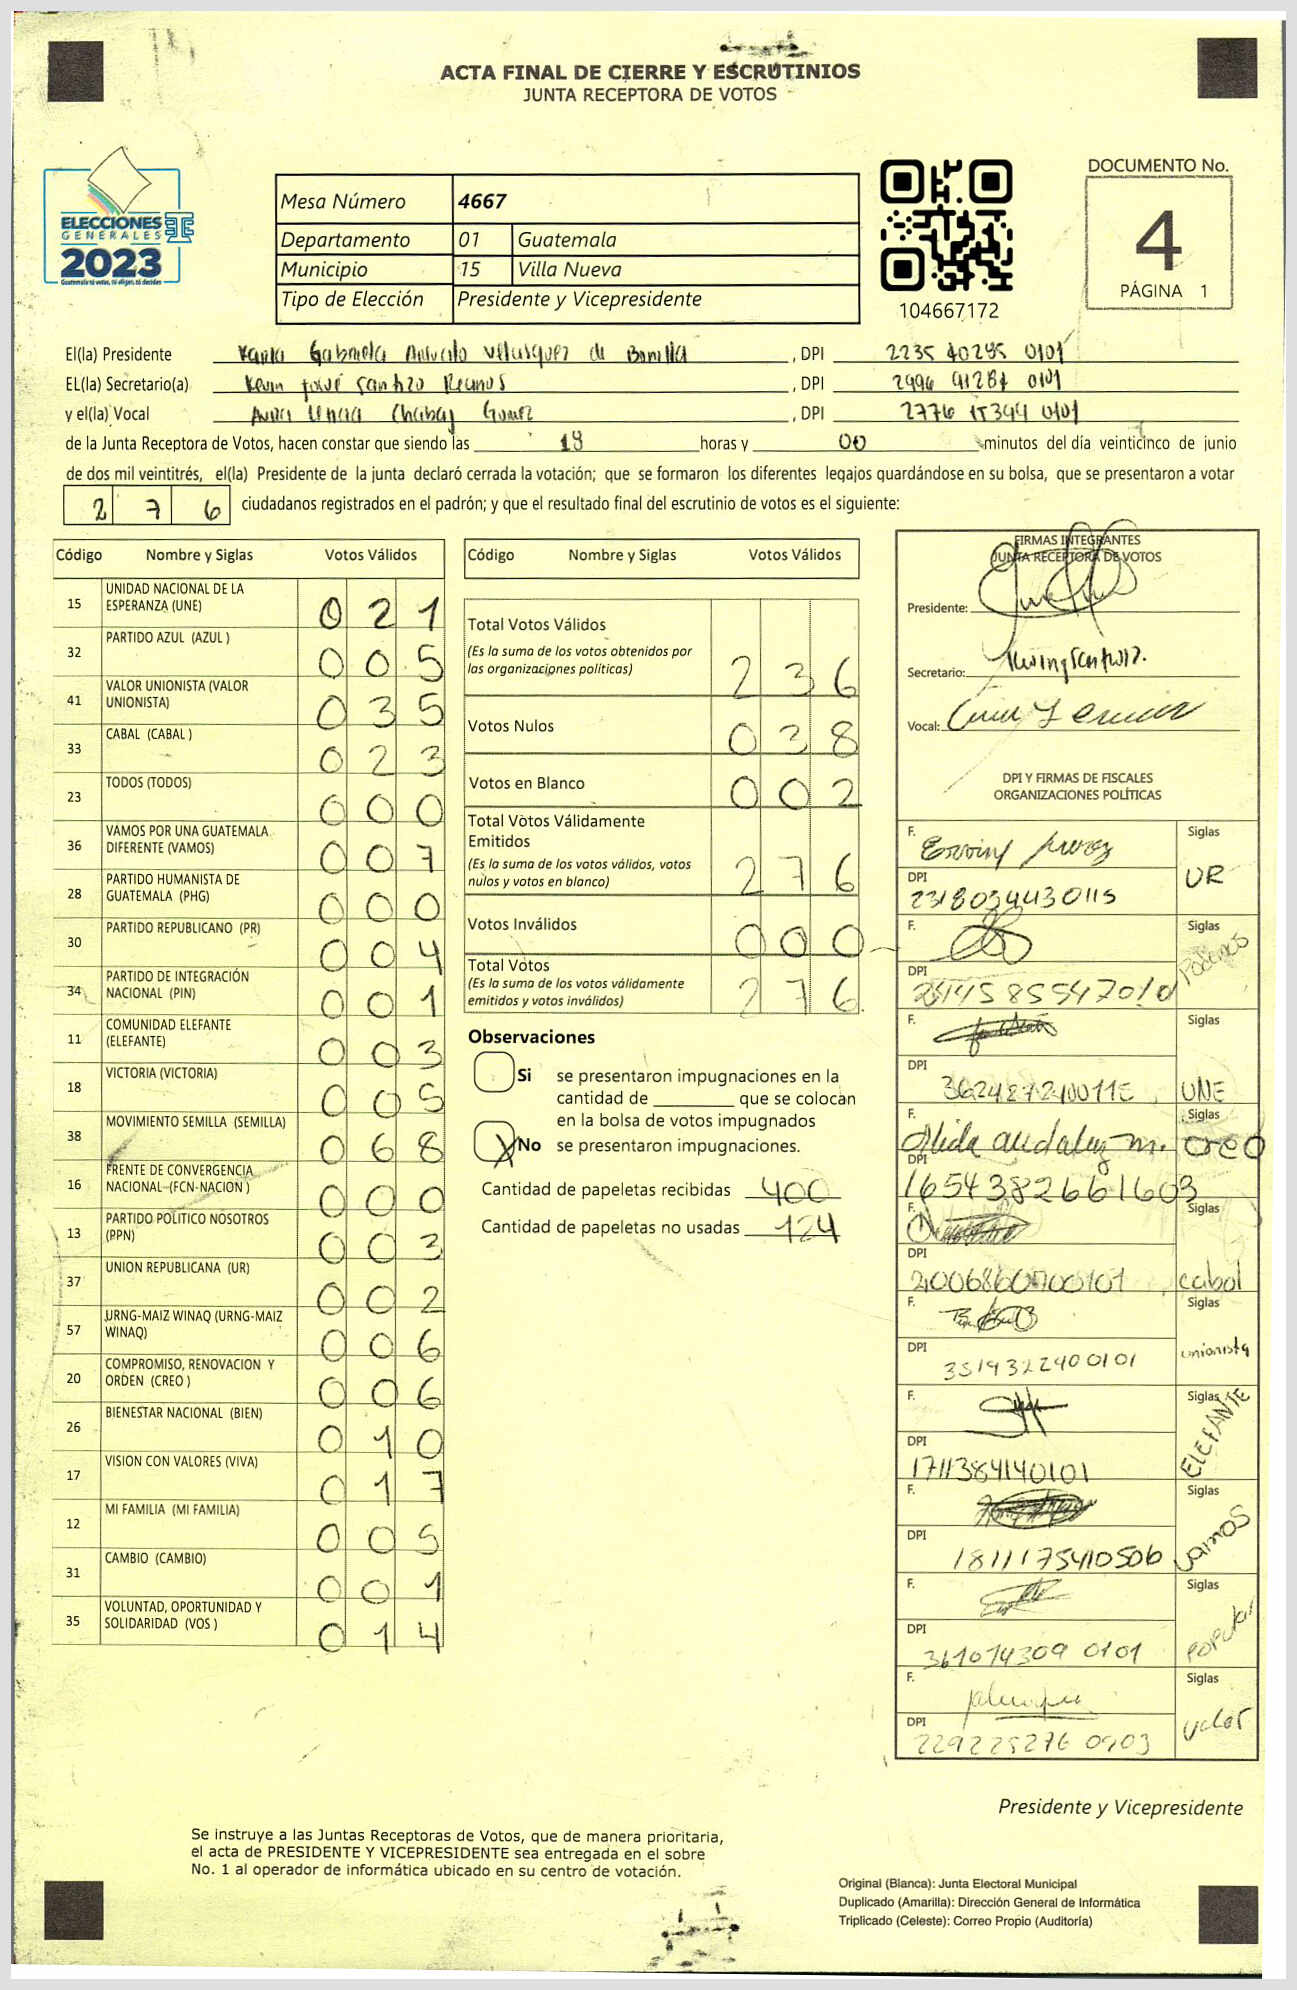 ACTA FINAL DE CIERRE Y ESCRUTINIOS
JUNTA RECEPTORA DE VOTOS
ELECCIONES
GENERALES
2023
Guatemala tú votas, tú eliges, tú decides
Mesa Número 4667
Departamento 01 Guatemala
Municipio 15 Villa Nueva
Tipo de Elección Presidente y Vicepresidente
104667172
DOCUMENTO No.
4
PÁGINA 1
El(la) Presidente Gabriela Velasquez de Bonilla, DPI 2235 0101
EL(la) Secretario(a) Kevin Josué Santizo, DPI 2996 0101
y el(la) Vocal Chabay Gomez, DPI 2776 0101
de la Junta Receptora de Votos, hacen constar que siendo las 18 horas y 00 minutos del día veinticinco de junio
de dos mil veintitrés, el(la) Presidente de la junta declaró cerrada la votación; que se formaron los diferentes legajos guardándose en su bolsa, que se presentaron a votar
2 7 6 ciudadanos registrados en el padrón; y que el resultado final del escrutinio de votos es el siguiente:
Código Nombre y Siglas Votos Válidos
15 UNIDAD NACIONAL DE LA ESPERANZA (UNE) 0 2 1
32 PARTIDO AZUL (AZUL ) 0 0 5
41 VALOR UNIONISTA (VALOR UNIONISTA) 0 3 5
33 CABAL (CABAL ) 0 2 3
23 TODOS (TODOS) 0 0 0
36 VAMOS POR UNA GUATEMALA DIFERENTE (VAMOS) 0 0 7
28 PARTIDO HUMANISTA DE GUATEMALA (PHG) 0 0 0
30 PARTIDO REPUBLICANO (PR) 0 0 4
34 PARTIDO DE INTEGRACIÓN NACIONAL (PIN) 0 0 1
11 COMUNIDAD ELEFANTE (ELEFANTE) 0 0 3
18 VICTORIA (VICTORIA) 0 0 5
38 MOVIMIENTO SEMILLA (SEMILLA) 0 6 8
16 FRENTE DE CONVERGENCIA NACIONAL (FCN-NACION ) 0 0 0
13 PARTIDO POLITICO NOSOTROS (PPN) 0 0 3
37 UNION REPUBLICANA (UR) 0 0 2
57 URNG-MAIZ WINAQ (URNG-MAIZ WINAQ) 0 0 6
20 COMPROMISO, RENOVACION Y ORDEN (CREO ) 0 0 6
26 BIENESTAR NACIONAL (BIEN) 0 1 0
17 VISION CON VALORES (VIVA) 0 1 7
12 MI FAMILIA (MI FAMILIA) 0 0 5
31 CAMBIO (CAMBIO) 0 0 1
35 VOLUNTAD, OPORTUNIDAD Y SOLIDARIDAD (VOS ) 0 1 4
Código Nombre y Siglas Votos Válidos
Total Votos Válidos
(Es la suma de los votos obtenidos por
las organizaciones políticas) 2 3 6
Votos Nulos 0 3 8
Votos en Blanco 0 0 2
Total Votos Válidamente
Emitidos
(Es la suma de los votos válidos, votos
nulos y votos en blanco) 2 7 6
Votos Inválidos 0 0 0
Total Votos
(Es la suma de los votos válidamente
emitidos y votos inválidos) 2 7 6
Observaciones
Si se presentaron impugnaciones en la
cantidad de ________ que se colocan
en la bolsa de votos impugnados
X No se presentaron impugnaciones.
Cantidad de papeletas recibidas 400
Cantidad de papeletas no usadas 124
FIRMAS INTEGRANTES
JUNTA RECEPTORA DE VOTOS
Presidente:
Secretario:
Vocal:
DPI Y FIRMAS DE FISCALES
ORGANIZACIONES POLÍTICAS
F. Siglas
DPI 2318034430115 UR
F. Siglas
DPI Podemos
F. Siglas
DPI UNE
F. Alida Siglas
DPI 1654382661603 creo
F. Siglas
DPI cabal
F. Siglas
DPI 3519322400101 unionista
F. Siglas
DPI 1711384140101 ELEFANTE
F. Siglas
DPI 1811175410506 VAMOS
F. Siglas
DPI 361074309 0101 popular
F. Siglas
DPI 229225276 0903 valor
Presidente y Vicepresidente
Se instruye a las Juntas Receptoras de Votos, que de manera prioritaria,
el acta de PRESIDENTE Y VICEPRESIDENTE sea entregada en el sobre
No. 1 al operador de informática ubicado en su centro de votación.
Original (Blanca): Junta Electoral Municipal
Duplicado (Amarilla): Dirección General de Informática
Triplicado (Celeste): Correo Propio (Auditoría)